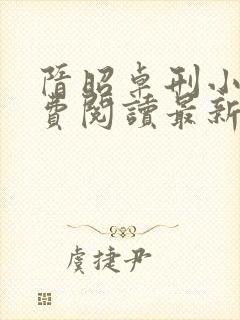 隋昭卓刑小
費閱讀最新
虞捷尹